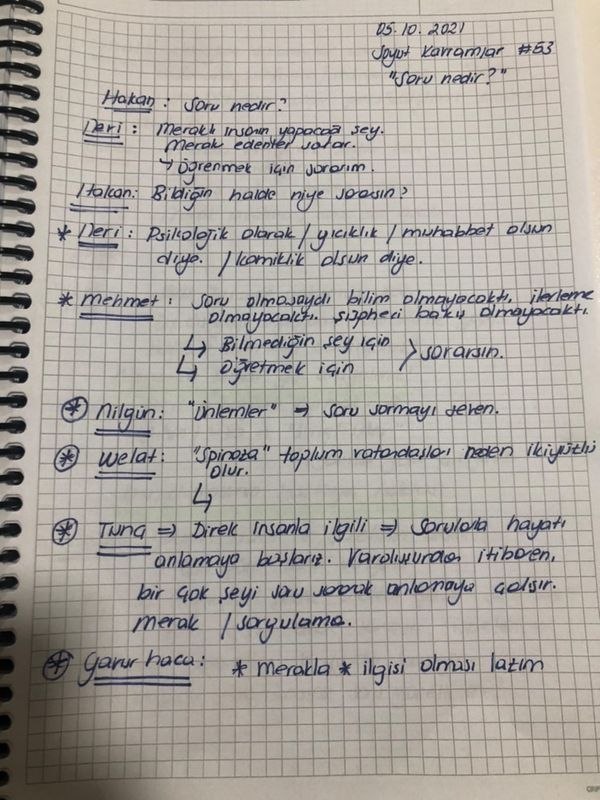 05.10.2021
Soyut Kavramlar #53
"Soru nedir?"
Hakan: Soru nedir?
Deri: Meraklı insanın yapacağı şey.
Merak edenler sorar.
→ Öğrenmek için sorarım.
Hakan: Bildiğin halde niye sorarsın?
* Deri: Psikolojik olarak / gıcıklık / muhabbet olsun
diye. / komiklik olsun diye.
* Mehmet: Soru olmasaydı bilim olmayacaktı, ilerleme
olmayacaktı. şüpheci bakış olmayacaktı.
↳ Bilmediğin şey için
↳ Öğretmek için > sorarsın.
* Nilgün: "Ünlemler" ⇒ soru sormayı seven.
* Welat: "Spinoza" toplum vatandaşları neden ikiyüzlü
olur.
↳
* Tuna ⇒ Direk insanla ilgili ⇒ sorularla hayatı
anlamaya başlarız. Varoluşundan itibaren,
bir çok şeyi soru sorarak anlamaya çalışır.
Merak / sorgulama.
* hoca: * Merakla * ilgisi olması lazım